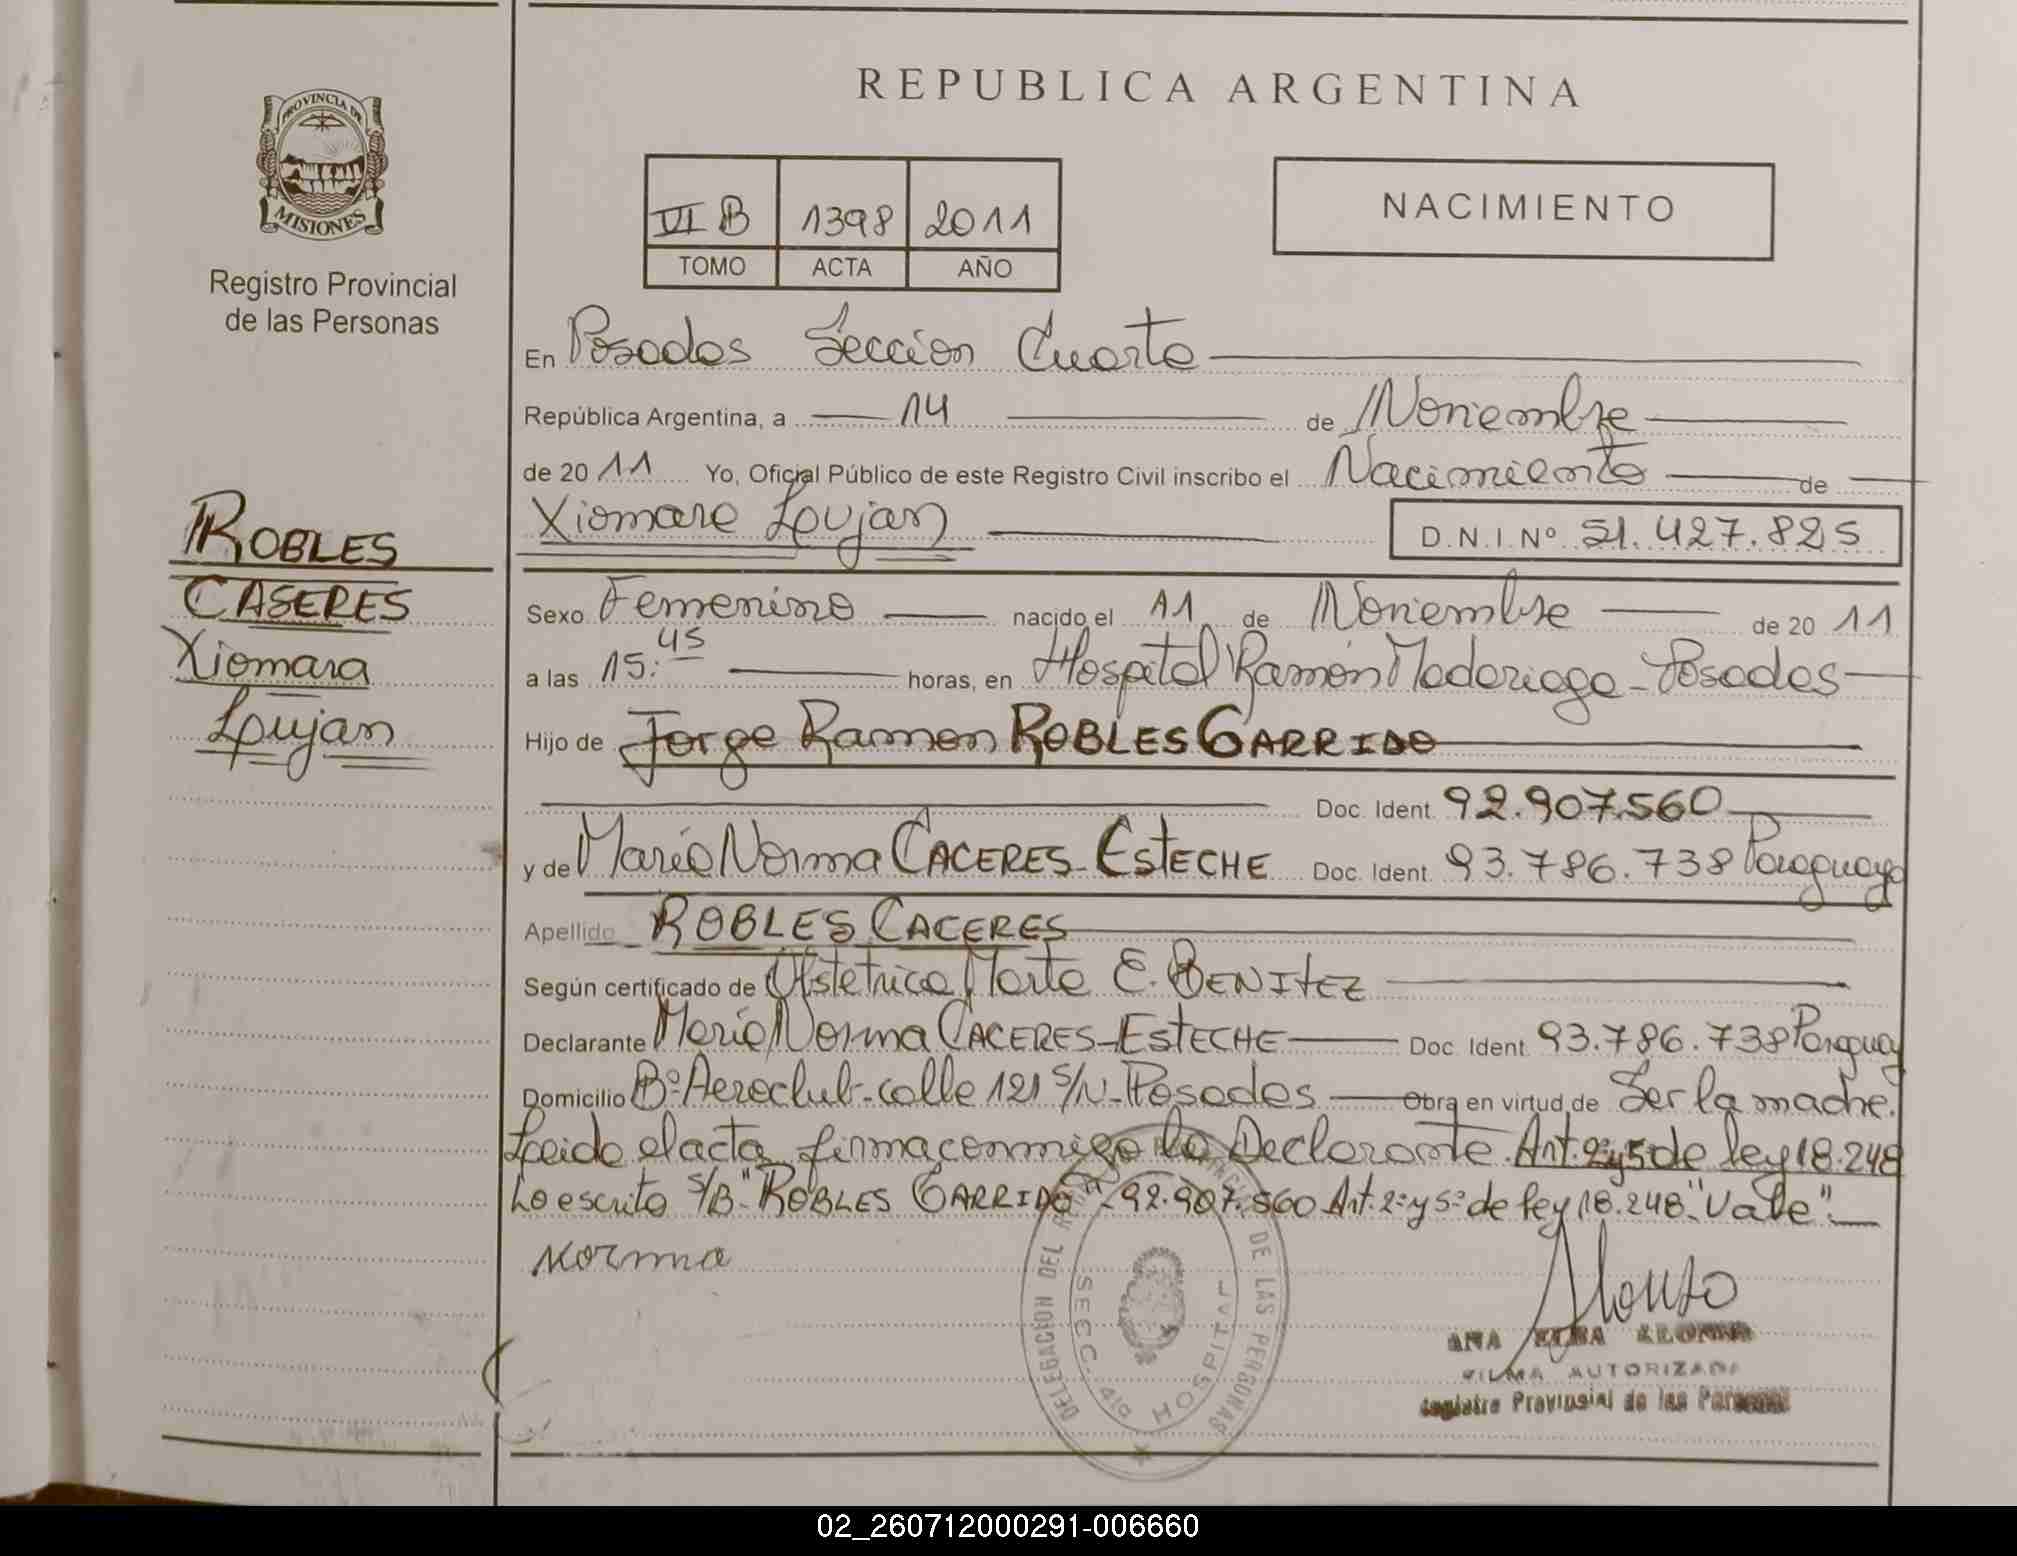 REPUBLICA ARGENTINA
PROVINCIA DE
MISIONES
Registro Provincial
de las Personas
VI B 1398 2011
TOMO ACTA AÑO
NACIMIENTO
En Posadas Sección Cuarta
República Argentina, a 14 de Noviembre
de 20 11 Yo, Oficial Público de este Registro Civil inscribo el Nacimiento de
Xiomara Lujan D.N.I. Nº 51.427.825
ROBLES
CASERES
Xiomara
Lujan
Sexo Femenino nacido el 11 de Noviembre de 20 11
a las 15:45 horas, en Hospital Ramón Madariaga - Posadas
Hijo de Jorge Ramon ROBLES GARRIDO
Doc. Ident. 92.907.560
y de María Norma CACERES - ESTECHE Doc. Ident. 93.786.738 Paraguaya
Apellido ROBLES CACERES
Según certificado de Obstetrica Marta E. BENITEZ
Declarante María Norma CACERES - ESTECHE Doc. Ident. 93.786.738 Paraguay
Domicilio Bº Aeroclub - calle 121 S/N - Posadas Obra en virtud de Ser la madre.
Leida el acta firma conmigo la Declarante. Art. 2º y 5 de ley 18.248
Lo escrito S/B "ROBLES GARRIDO" - 92.907.560 Art. 2º y 5º de ley 18.248 "Vale".
Norma
Alonso
ANA ELBA ALONSO
FIRMA AUTORIZADA
Registro Provincial de las Personas
DELEGACION DEL DE LAS PERSONAS
SECC. 4ta HOSPITAL
02_260712000291-006660